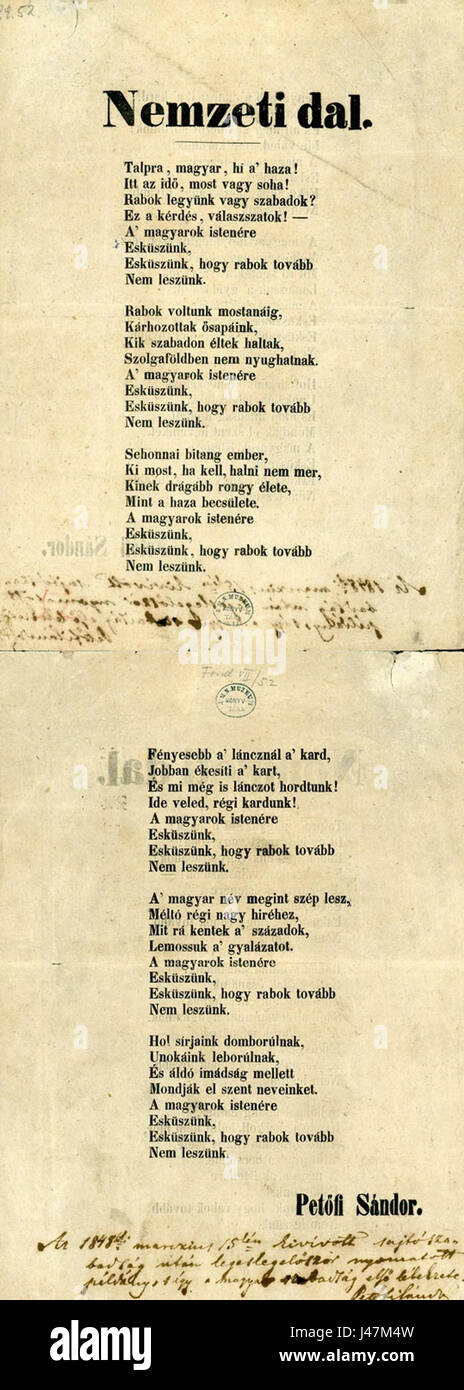 29.52
Nemzeti dal.
Talpra, magyar, hí a’ haza!
Itt az idő, most vagy soha!
Rabok legyünk vagy szabadok?
Ez a kérdés, válaszszatok! —
A’ magyarok istenére
Esküszünk,
Esküszünk, hogy rabok tovább
Nem leszünk.
Rabok voltunk mostanáig,
Kárhozottak ősapáink,
Kik szabadon éltek haltak,
Szolgaföldben nem nyughatnak.
A’ magyarok istenére
Esküszünk,
Esküszünk, hogy rabok tovább
Nem leszünk.
Sehonnai bitang ember,
Ki most, ha kell, halni nem mer,
Kinek drágább rongy élete,
Mint a haza becsülete.
A magyarok istenére
Esküszünk,
Esküszünk, hogy rabok tovább
Nem leszünk.
Fond VII/52
M.N. MUZEUM
KÖNYV
Fényesebb a’ láncznál a’ kard,
Jobban ékesíti a’ kart,
És mi még is lánczot hordtunk!
Ide veled, régi kardunk!
A magyarok istenére
Esküszünk,
Esküszünk, hogy rabok tovább
Nem leszünk.
A’ magyar név megint szép lesz,
Méltó régi nagy hiréhez,
Mit rá kentek a’ századok,
Lemossuk a’ gyalázatot.
A magyarok istenére
Esküszünk,
Esküszünk, hogy rabok tovább
Nem leszünk.
Hol sírjaink domborúlnak,
Unokáink leborúlnak,
És áldó imádság mellett
Mondják el szent neveinket.
A magyarok istenére
Esküszünk,
Esküszünk, hogy rabok tovább
Nem leszünk.
Petőfi Sándor.
Az 1848ki marczius 15kén kivívott sajtósza-
badság után legeslegelőször nyomatott
példány, s így a magyar szabadság első lélekzete.
Petőfi Sándor
alamy stock photo
alamy
Image ID: J47M4W
www.alamy.com